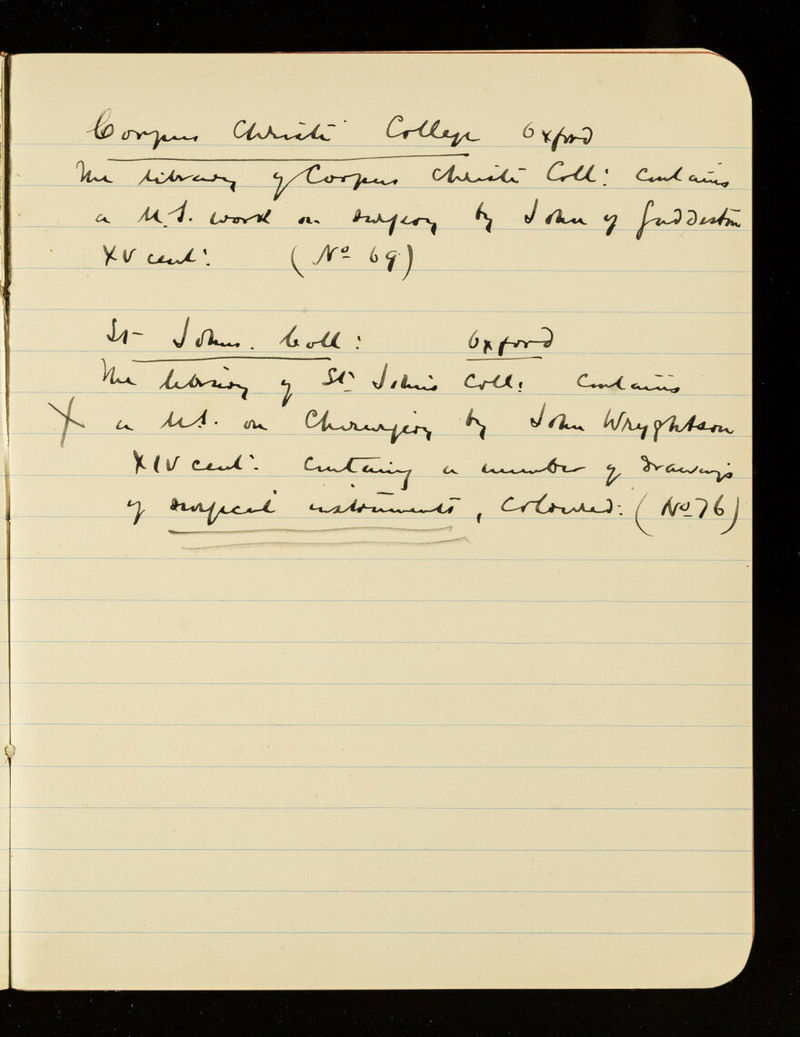 Corpus Christi College Oxford
The library of Corpus Christi Coll: contains
a M.S. work on surgery by John of Guddeston
XV cent: (No 69)
St Johns. Coll: Oxford
The library of St Johns Coll: contains
X a M.S. on Chirurgery by John Wryghtson
XIV cent: containing a number of drawings
of surgical instruments, coloured: (No 76)